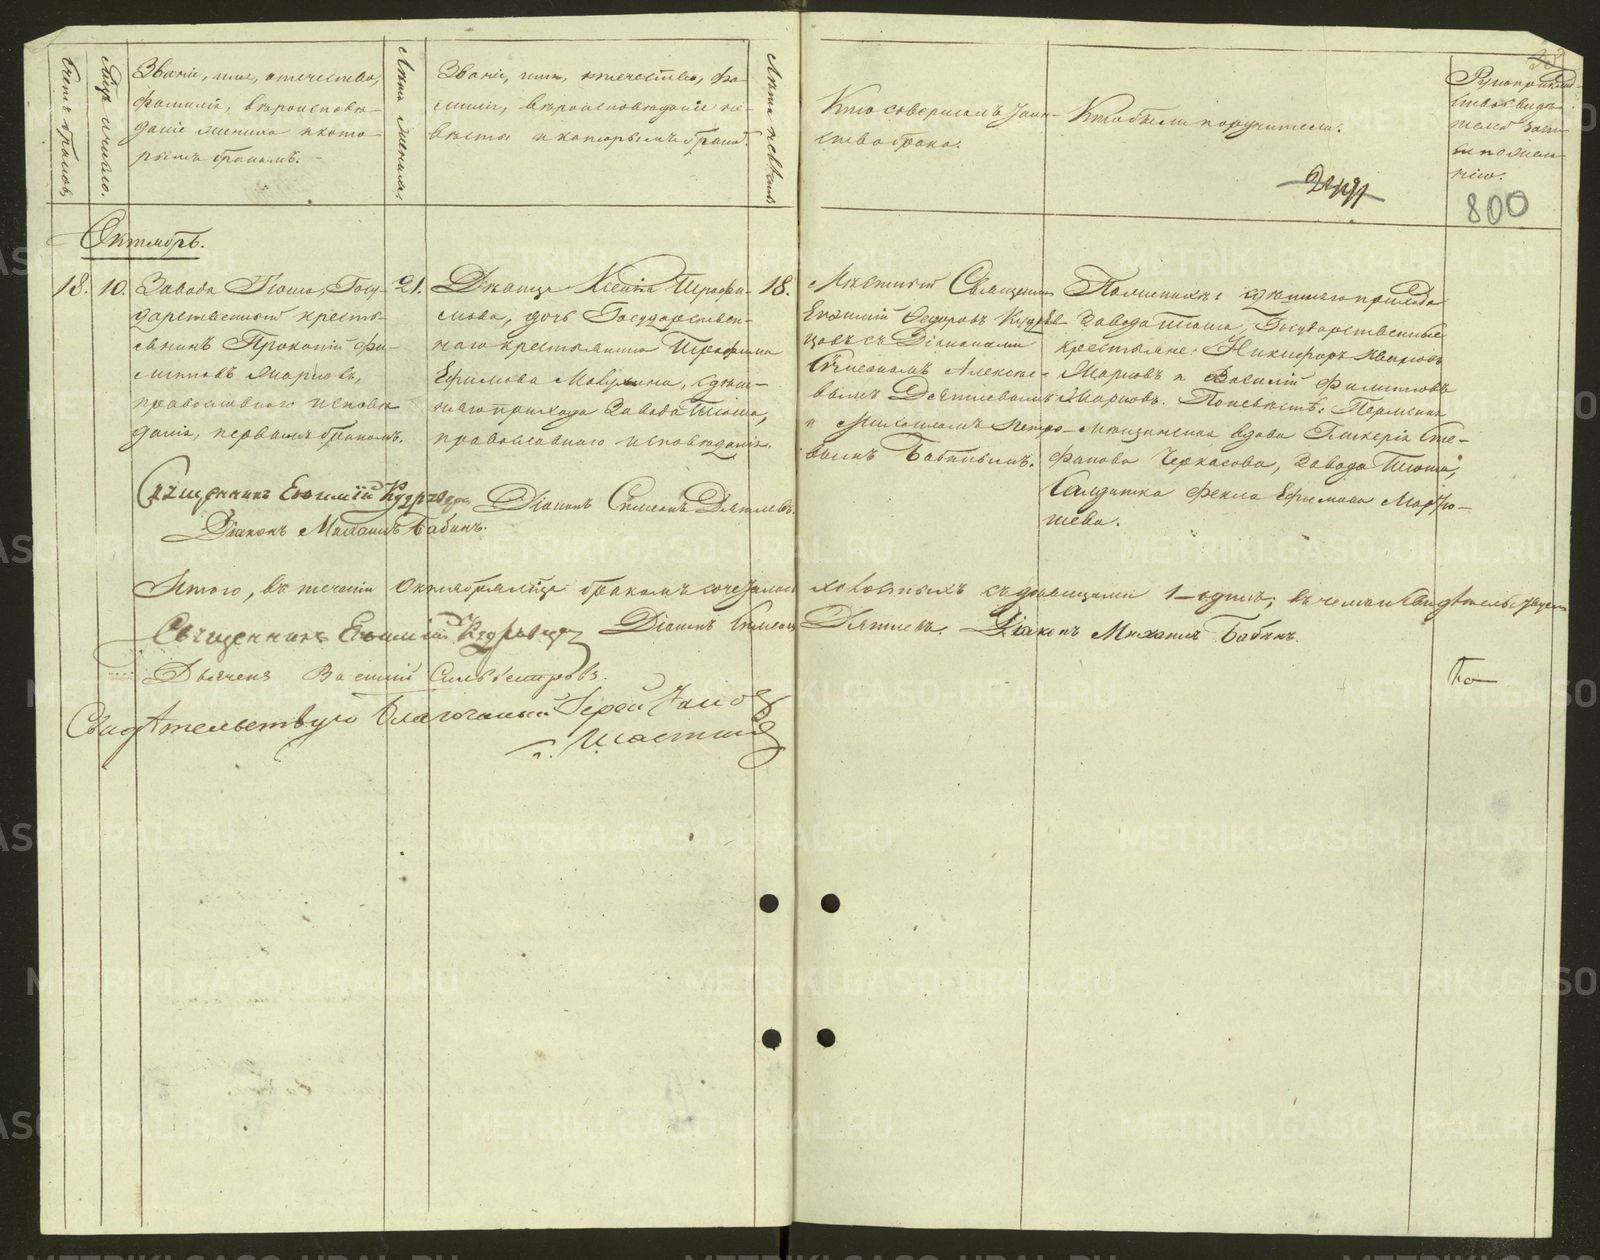 Счетъ браковъ.
Мѣсяцъ и число.
Званіе, имя, отечество,
фамилія, вѣроисповѣ-
даніе жениха и кото-
рымъ бракомъ.
Лѣта жениха.
Званіе, имя, отечество, фа-
милія, вѣроисповѣданіе не-
вѣсты и которымъ бракомъ.
Лѣта невѣсты
Кто совершалъ Таин-
ство брака.
Кто были поручители.
Рукоприклад-
ство свидѣ-
телей запи-
си по жела-
нію.
800
Октябрь.
18. 10.
Завода Тюша, Госу-
дарственный кресть-
янинъ Прокопій Фи-
липповъ Марловъ,
православнаго исповѣ-
данія, первымъ бракомъ.
21.
Дѣвица Ксенія Трофи-
мова, дочь Государствен-
наго крестьянина Трофима
Ефимова Мокрушина, здѣш-
няго прихода завода Тюша,
православнаго исповѣданія.
18.
Мѣстный Священникъ
Евѳимій Ѳедоровъ Кудрявъ-
цовъ съ Діаконами
Симеономъ Алексѣе-
вымъ Дягилевымъ
и Михаиломъ Петро-
вымъ Бабинымъ.
По женихѣ: здѣшняго прихода
завода Тюша, Государственные
крестьяне: Никифоръ Ивановъ
Марловъ и Василій Филипповъ
Марловъ. По невѣстѣ: Пермская
мѣщанская вдова Гликерія Сте-
фанова Черкасова, завода Тюша,
Солдатка Фекла Ефимова Марты-
шева.
Священникъ Евѳимій Кудрявцовъ Діаконъ Симеонъ Дягилевъ.
Діаконъ Михаилъ Бабинъ.
Итого, въ теченіи Октября мѣсяца бракомъ сочеталось холостыхъ съ дѣвицами 1 – одинъ, въ чемъ и свидѣтельствуемъ
Священникъ Евѳимій Кудрявцовъ Діаконъ Симеонъ Дягилевъ. Діаконъ Михаилъ Бабинъ.
Дьячекъ Василій Сильвестровъ.
Свидѣтельствую Благочинный Іерей
METRIKI.GASO-URAL.RU